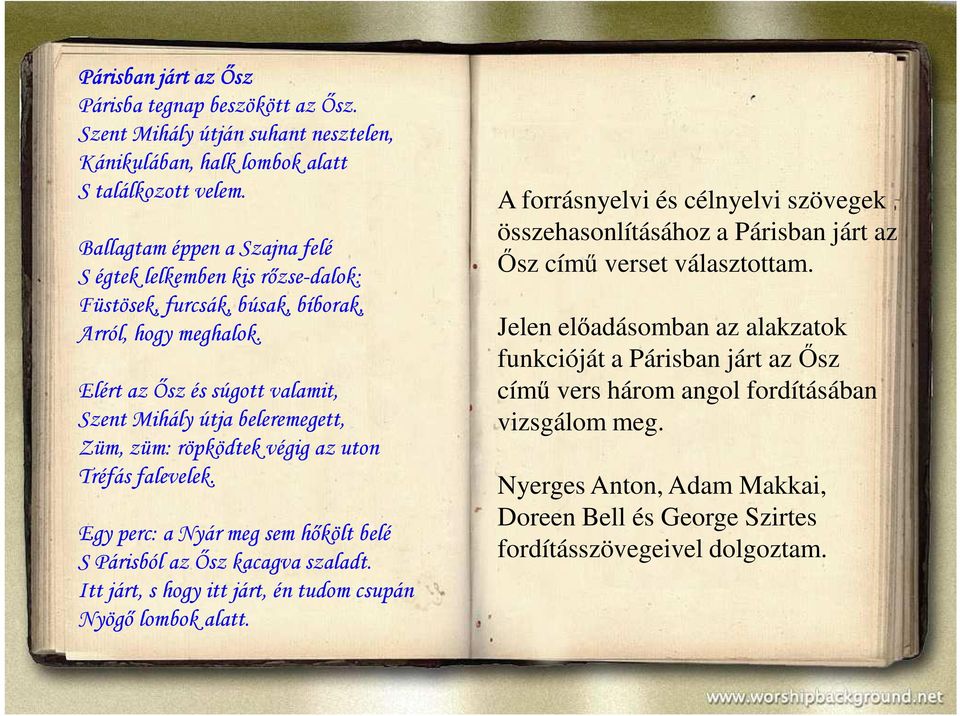 Párisban járt az Ősz
Párisba tegnap beszökött az Ősz.
Szent Mihály útján suhant nesztelen,
Kánikulában, halk lombok alatt
S találkozott velem.
Ballagtam éppen a Szajna felé
S égtek lelkemben kis rőzse-dalok:
Füstösek, furcsák, búsak, bíborak,
Arról, hogy meghalok.
Elért az Ősz és súgott valamit,
Szent Mihály útja beleremegett,
Züm, züm: röpködtek végig az uton
Tréfás falevelek.
Egy perc: a Nyár meg sem hőkölt belé
S Párisból az Ősz kacagva szaladt.
Itt járt, s hogy itt járt, én tudom csupán
Nyögő lombok alatt.
A forrásnyelvi és célnyelvi szövegek
összehasonlításához a Párisban járt az
Ősz című verset választottam.
Jelen előadásomban az alakzatok
funkcióját a Párisban járt az Ősz
című vers három angol fordításában
vizsgálom meg.
Nyerges Anton, Adam Makkai,
Doreen Bell és George Szirtes
fordításszövegeivel dolgoztam.
www.worshipbackground.net